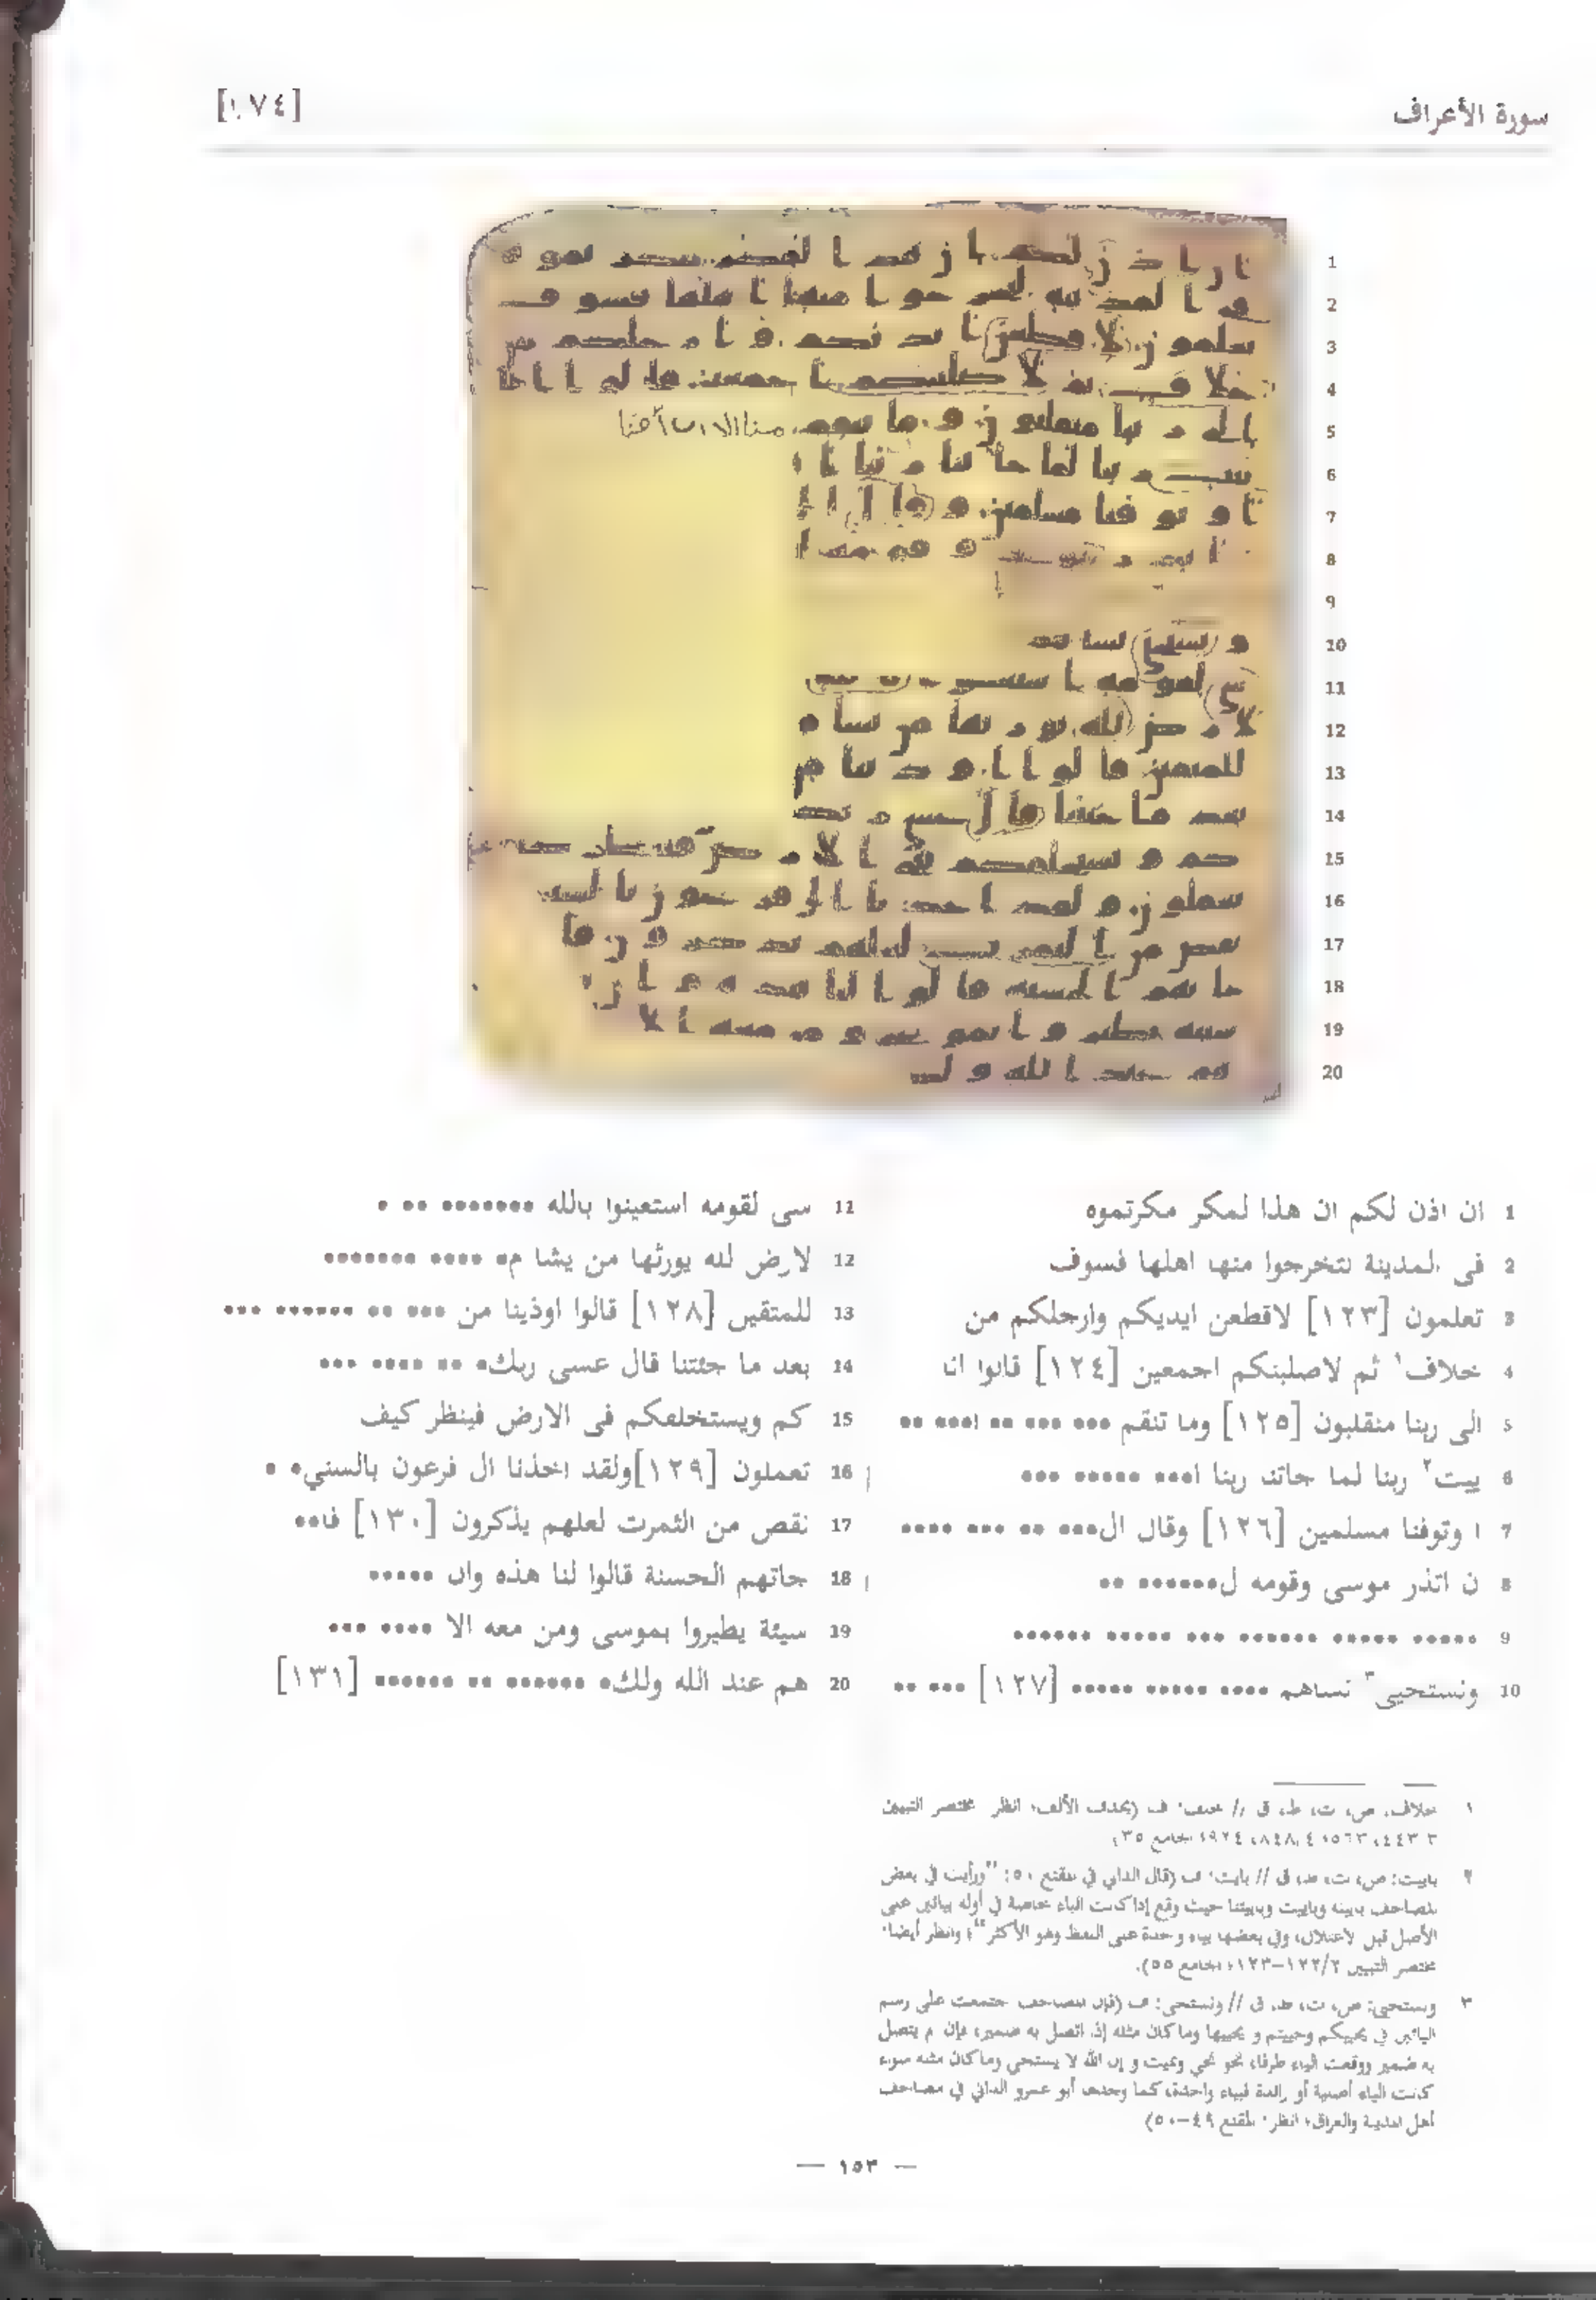 سورة الأعراف
[١٧٤]
1 ان اذن لكم ان هذا لمكر مكرتموه
2 فى المدينة لتخرجوا منها اهلها فسوف
3 تعلمون [١٢٣] لاقطعن ايديكم وارجلكم من
4 خلاف١ ثم لاصلبنكم اجمعين [١٢٤] قالوا انا
5 الى ربنا منقلبون [١٢٥] وما تنقم ••• ••• •• ا••• ••
6 ييت٢ ربنا لما جاتنا ربنا ا••• ••••• •••
7 ا وتوفنا مسلمين [١٢٦] وقال ال••• •• ••• ••••
8 ن اتذر موسى وقومه ل•••••• ••
9 ••••• ••••• •••••• ••• ••••• ••••••
10 ونستحيى٣ نساهم •••• ••••• ••••• [١٢٧] ••• ••
11 سى لقومه استعينوا بالله ••••••• •• •
12 لارض لله يورثها من يشا م• •••• •••••••
13 للمتقين [١٢٨] قالوا اوذينا من ••• •• •••••• •••
14 بعد ما جئتنا قال عسى ربك• •• •••• •••
15 كم ويستخلفكم فى الارض فينظر كيف
16 تعملون [١٢٩] ولقد اخذنا ال فرعون بالسني• •
17 نقص من الثمرت لعلهم يذكرون [١٣٠] فا••
18 جاتهم الحسنة قالوا لنا هذه وان •••••
19 سيئة يطيروا بموسى ومن معه الا •••• •••
20 هم عند الله ولك• •••••• •• •••••• [١٣١]
١ خلاف: ص، ت، ط، ق // خلف: ف (بحذف الألف؛ انظر مختصر التبيين
٢ باييت: ص، ت، ط، ق // بايت: ف (قال الداني في المقنع ٥٠: "ورأيت في بعض
المصاحف باييه وباييت وباييتنا حيث وقع إذا كانت الباء خاصة في أوله بيائين على
الأصل قبل الاعتلال، وفي بعضها بياء واحدة على اللفظ وهو الأكثر"؛ وانظر أيضا:
مختصر التبيين ١٢٢/٢–١٢٣؛ الجامع ٥٥).
٣ ونستحيي: ص، ت، ط، ق // ونستحي: ف (فإن المصاحف اجتمعت على رسم
اليائين في يحييكم وحييتم و يحييها وما كان مثله إذا اتصل به ضمير، فإن لم يتصل
به ضمير ووقعت الياء طرفا، نحو نحي ونميت و إن الله لا يستحي وما كان مثله سواء
كانت الياء أصلية أو زائدة فبياء واحدة، كما وجدها أبو عمرو الداني في مصاحف
أهل المدينة والعراق؛ انظر: المقنع ٤٩–٥٠)
— ١٥٣ —